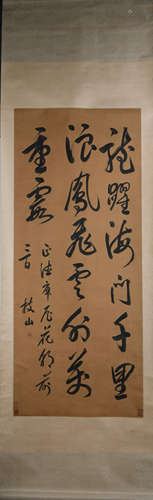 龍躍海門千里
浪鳳飛雲外萬
重霞
正德庚辰花朝前
三日 枝山